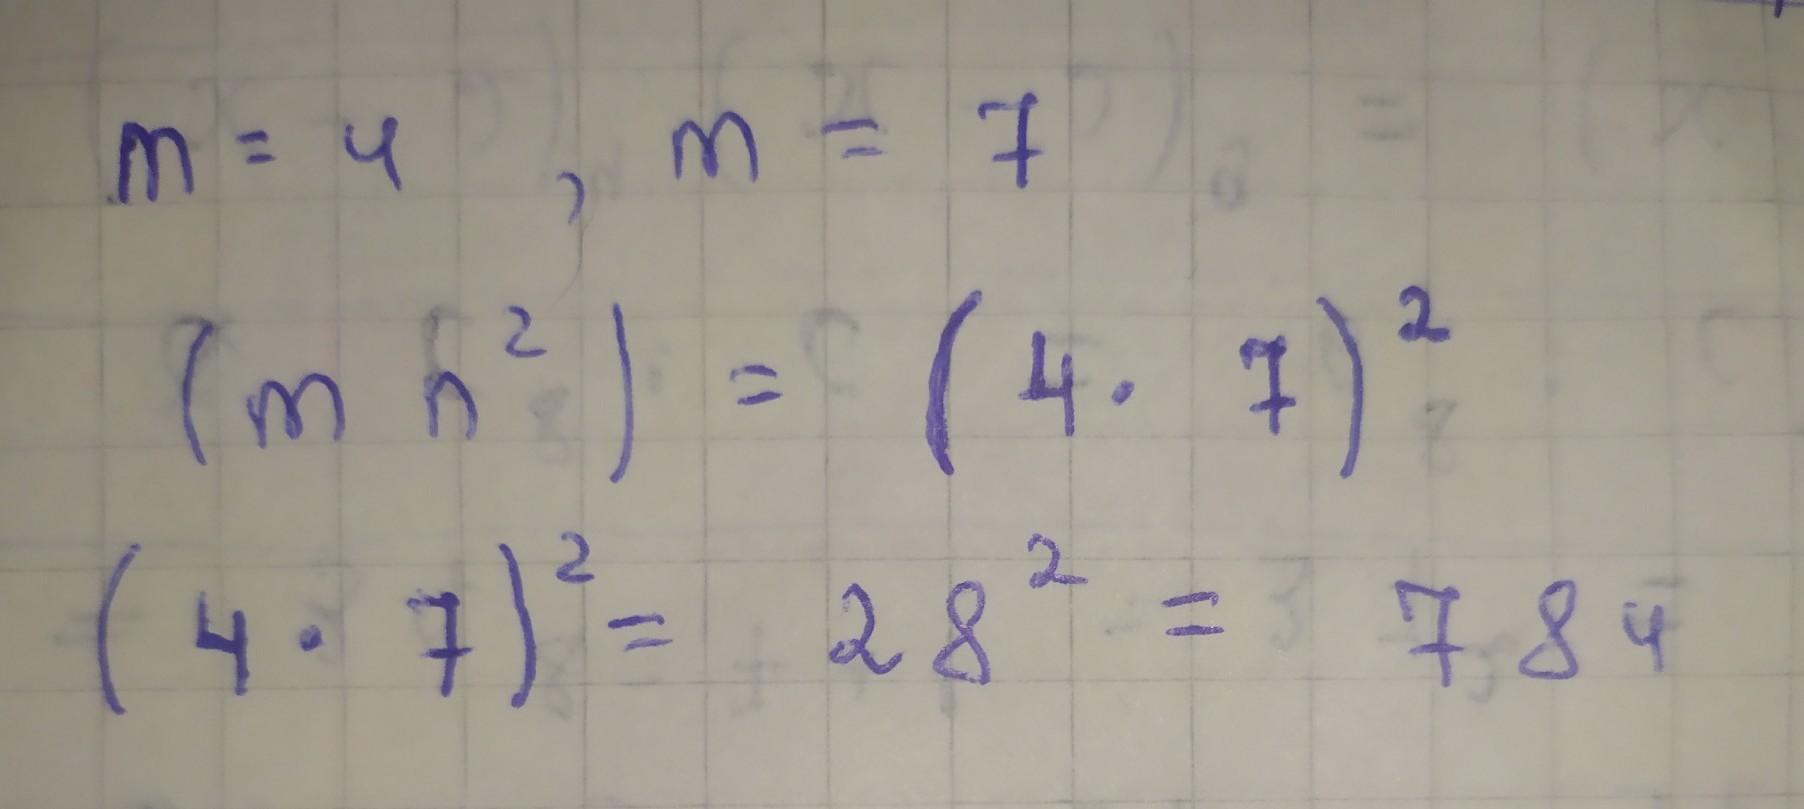 m = 4 , m = 7
(m n²) = (4 · 7)²
(4 · 7)² = 28² = 784